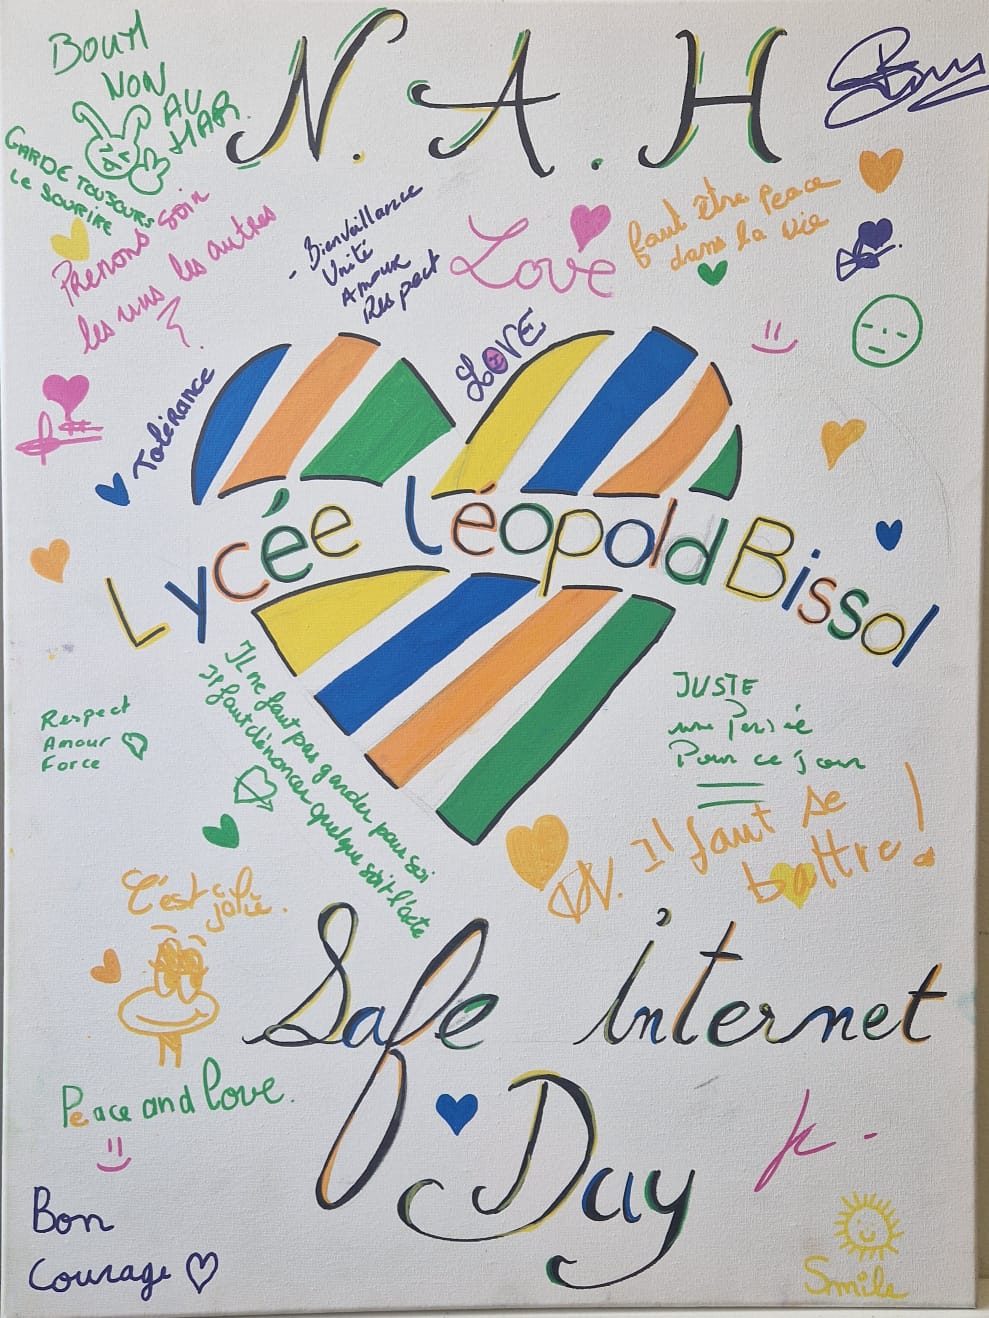 N.A.H
BOUH
NON
AU
HAR.
GARDE TOUJOURS
LE SOURIRE
Prenons soin
les uns les autres
- Bienvaillance
Unité
Amour
Respect
Love
faut être peace
dans la vie
LOVE
Tolérance
Lycée Léopold Bissol
Il ne faut pas garder pour soi
Il faut dénoncer quelque soit l'acte
Respect
Amour
Force
JUSTE
une Pensée
Pour ce jour
Il faut se
battre !
C'est
jolie.
Safe internet
Day
Peace and love.
Bon
Courage
Smile